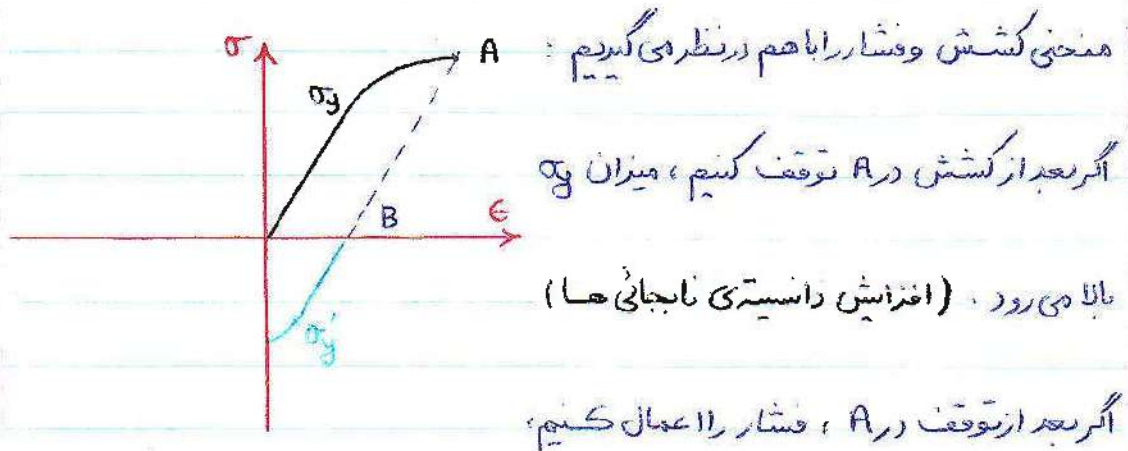 منحنی کشش و فشار را با هم در نظر می گیریم :
اگر بعد از کشش در A توقف کنیم ، میزان σy
بالا می رود . (افزایش دانسیته‌ی نابجائی ها)
اگر بعد از توقف در A ، فشار را اعمال کنیم:
σ
A
σy
B
ϵ
σ'y